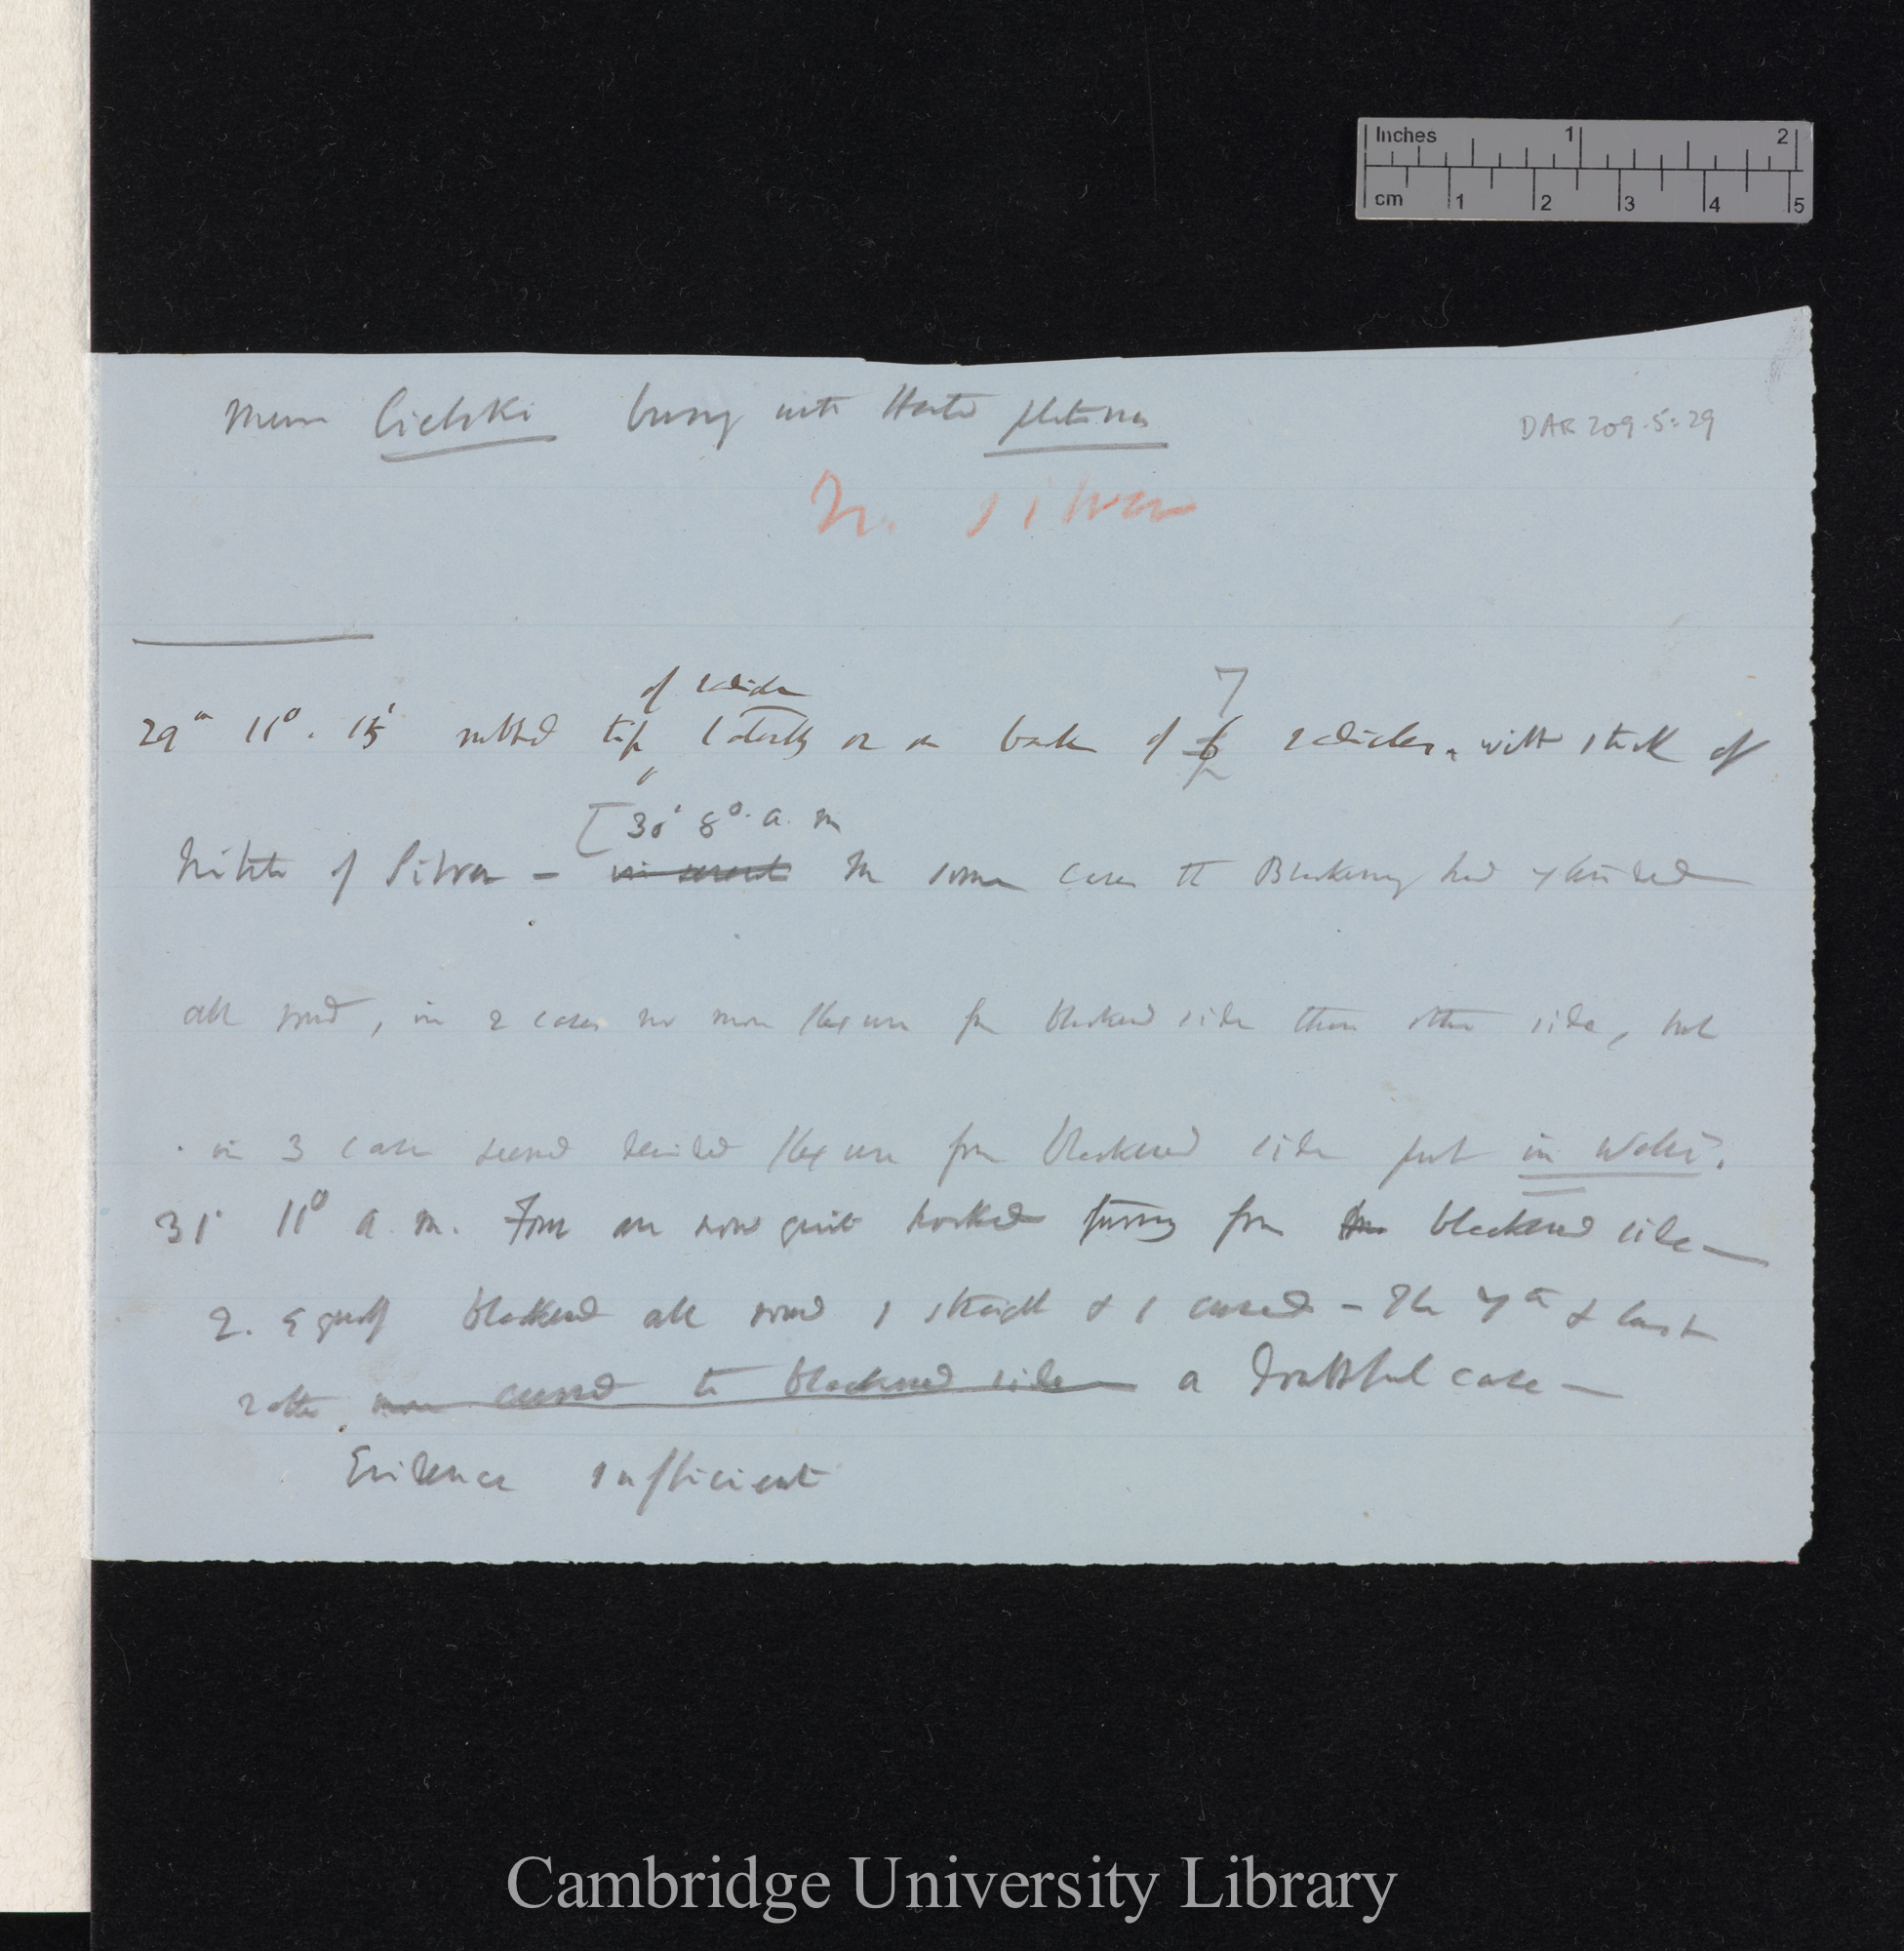 Inches 1 2
cm 1 2 3 4 5
Mem Cielski burning with Heated platinum
DAR 209.5:29
N. Silver
of radicle
7
29th 11°. 15' rubbed tip laterally or on back of 6 radicles. with stick of
[30' 8° a.m
Nitrate of Silver — in several In some cases the Blackening had extended
all round, in 2 cases no more flexure from blackened side than other side, but
in 3 cases seemed decided flexure from blackened side just in
31' 11° a.m. Four are now quite hooked from blackened side —
2. equally blackened all round 1 straight & 1 curved — The 7th & last
curved to blackened side a doubtful case —
Evidence sufficient
Cambridge University Library